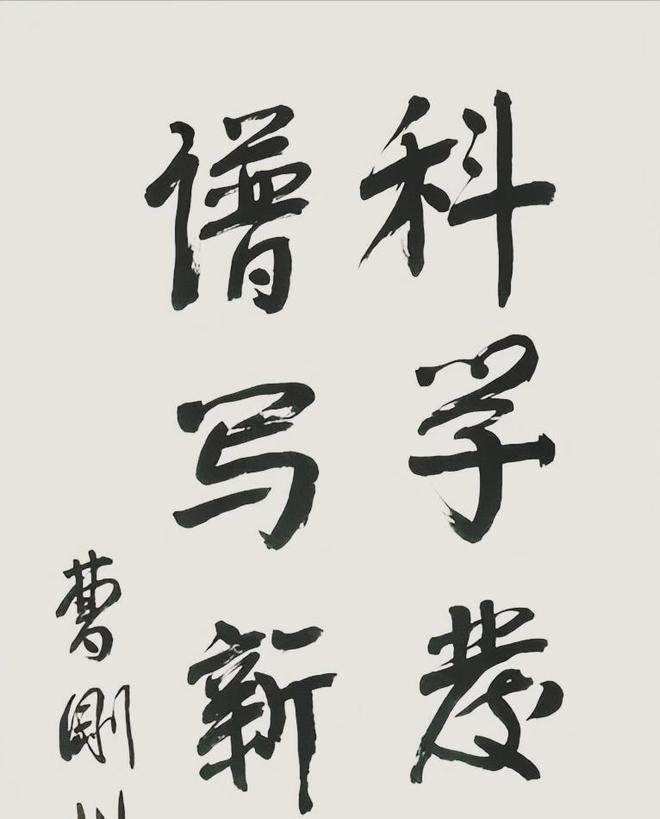 科学发
谱写新
曹刚